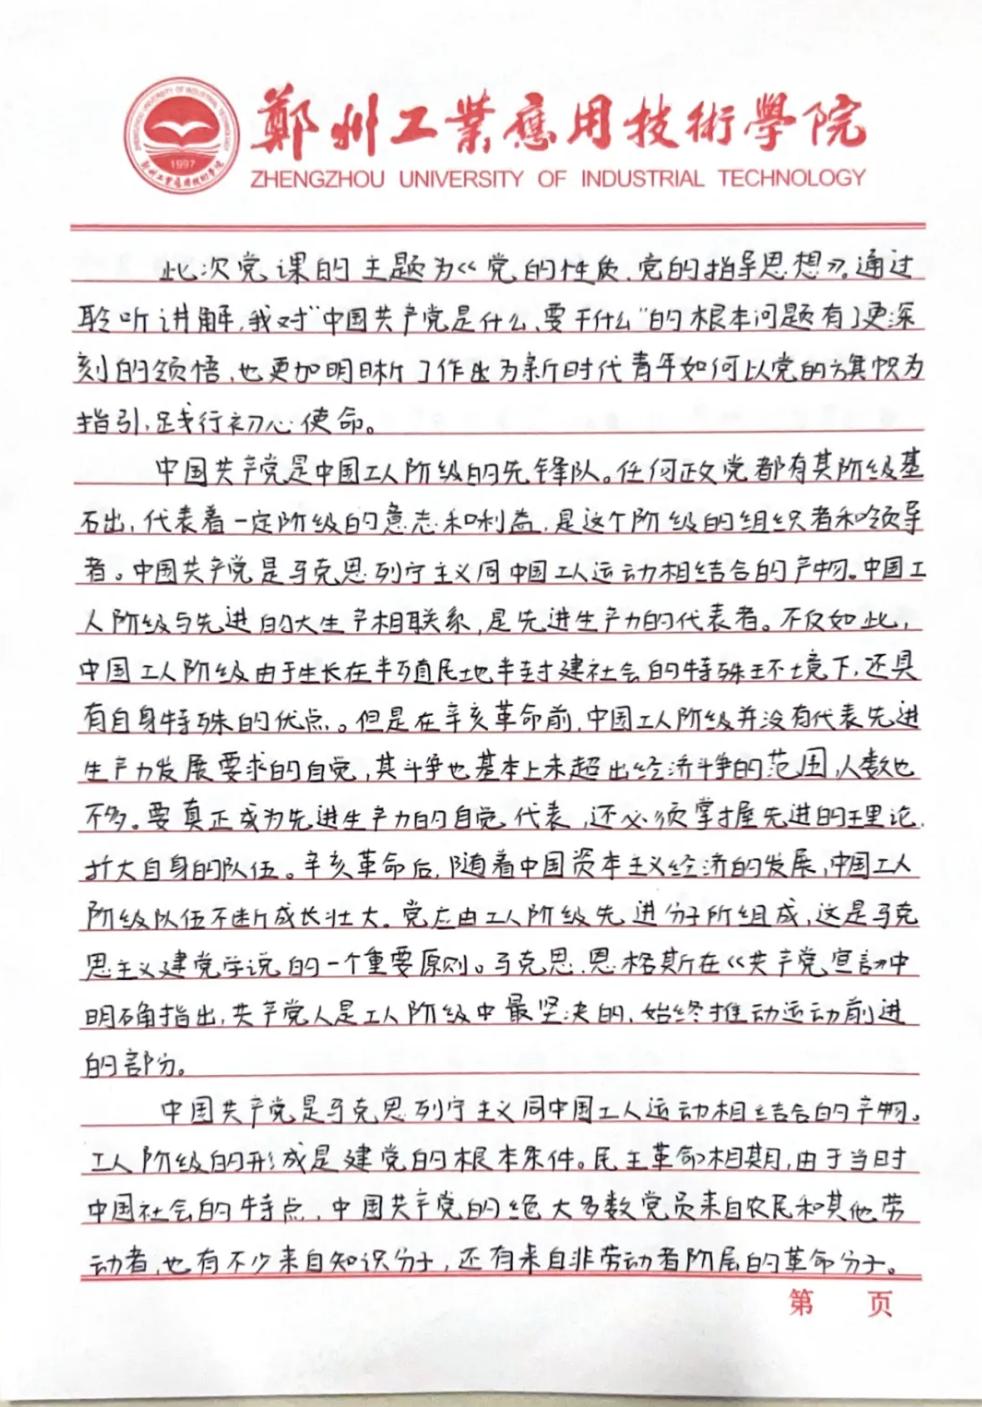 鄭州工業應用技術學院
ZHENGZHOU UNIVERSITY OF INDUSTRIAL TECHNOLOGY
1997
此次党课的主题为《党的性质、党的指导思想》。通过
聆听讲解,我对"中国共产党是什么、要干什么"的根本问题有了更深
刻的领悟,也更加明晰了作出为新时代青年如何以党的旗帜为
指引,践行初心使命。
中国共产党是中国工人阶级的先锋队。任何政党都有其阶级基
石出,代表着一定阶级的意志和利益,是这个阶级的组织者和领导
者。中国共产党是马克思列宁主义同中国工人运动相结合的产物。中国工
人阶级与先进的大生产相联系,是先进生产力的代表者。不仅如此,
中国工人阶级由于生长在半殖民地半封建社会的特殊环境下,还具
有自身特殊的优点。但是在辛亥革命前,中国工人阶级并没有代表先进
生产力发展要求的自觉,其斗争也基本上未超出经济斗争的范围,人数也
不多。要真正成为先进生产力的自觉代表,还必须掌握先进的理论,
扩大自身的队伍。辛亥革命后,随着中国资本主义经济的发展,中国工人
阶级队伍不断成长壮大。党应由工人阶级先进分子所组成,这是马克
思主义建党学说的一个重要原则。马克思、恩格斯在《共产党宣言》中
明确指出,共产党人是工人阶级中最坚决的、始终推动运动前进
的部分。
中国共产党是马克思列宁主义同中国工人运动相结合的产物。
工人阶级的形成是建党的根本条件。民主革命相期,由于当时
中国社会的特点,中国共产党的绝大多数党员来自农民和其他劳
动者,也有不少来自知识分子,还有来自非劳动者阶层的革命分子。
第 页